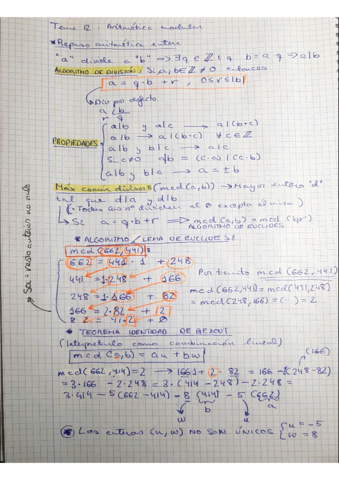 Tema 12 Aritmética modular
* Repaso aritmética entera
"a" divide a "b" → ∃q ∈ ℤ t.q b = a·q → a|b
ALGORITMO DE DIVISIÓN: Si a, b ∈ ℤ ≠ 0 entonces
a = q·b + r, 0≤r≤|b|
↳ Div por defecto
a ⌊b
r q
PROPIEDADES
a|b y a|c → a|(b+c)
a|b → a|(b·c) ∀c∈ℤ
a|b y b|c → a|c
Si c≠0 a|b = (c·a)|(c·b)
a|b y b|a → a = ±b
Máx común divisor (mcd(a,b)) → Mayor entero "d"
tal que d|a y d|b
(· Todos los nº dividen al 0 excepto el mismo)
↳ Si a = q·b + r ⟹ mcd(a,b) = mcd(b,r)
ALGORITMO DE EUCLIDES
* ALGORITMO / LEMA DE EUCLIDES
mcd(662, 414)
662 = 414·1 + 248
414 = 1·248 + 166
248 = 1·166 + 82
166 = 2·82 + 2
82 = 41·2 + 0
Por tanto mcd(662,414)
mcd(662,414) = mcd(414,248)
= mcd(248,166) = (···) = 2
Sa = resto entero no nulo
* TEOREMA IDENTIDAD DE BEZOUT
(Interpretarlo como combinación lineal)
mcd(a,b) = au + bw
(166)
mcd(662,414) = 2 → 166·1 - 2·82 = 166 - 2(248-82)
= 3·166 - 2·248 = 3·(414 - 248) - 2·248 =
3·414 - 5(662-414) = 8(414) - 5(662)
w b u a
* Los enteros (u, w) NO SON ÚNICOS { u = -5
w = 8